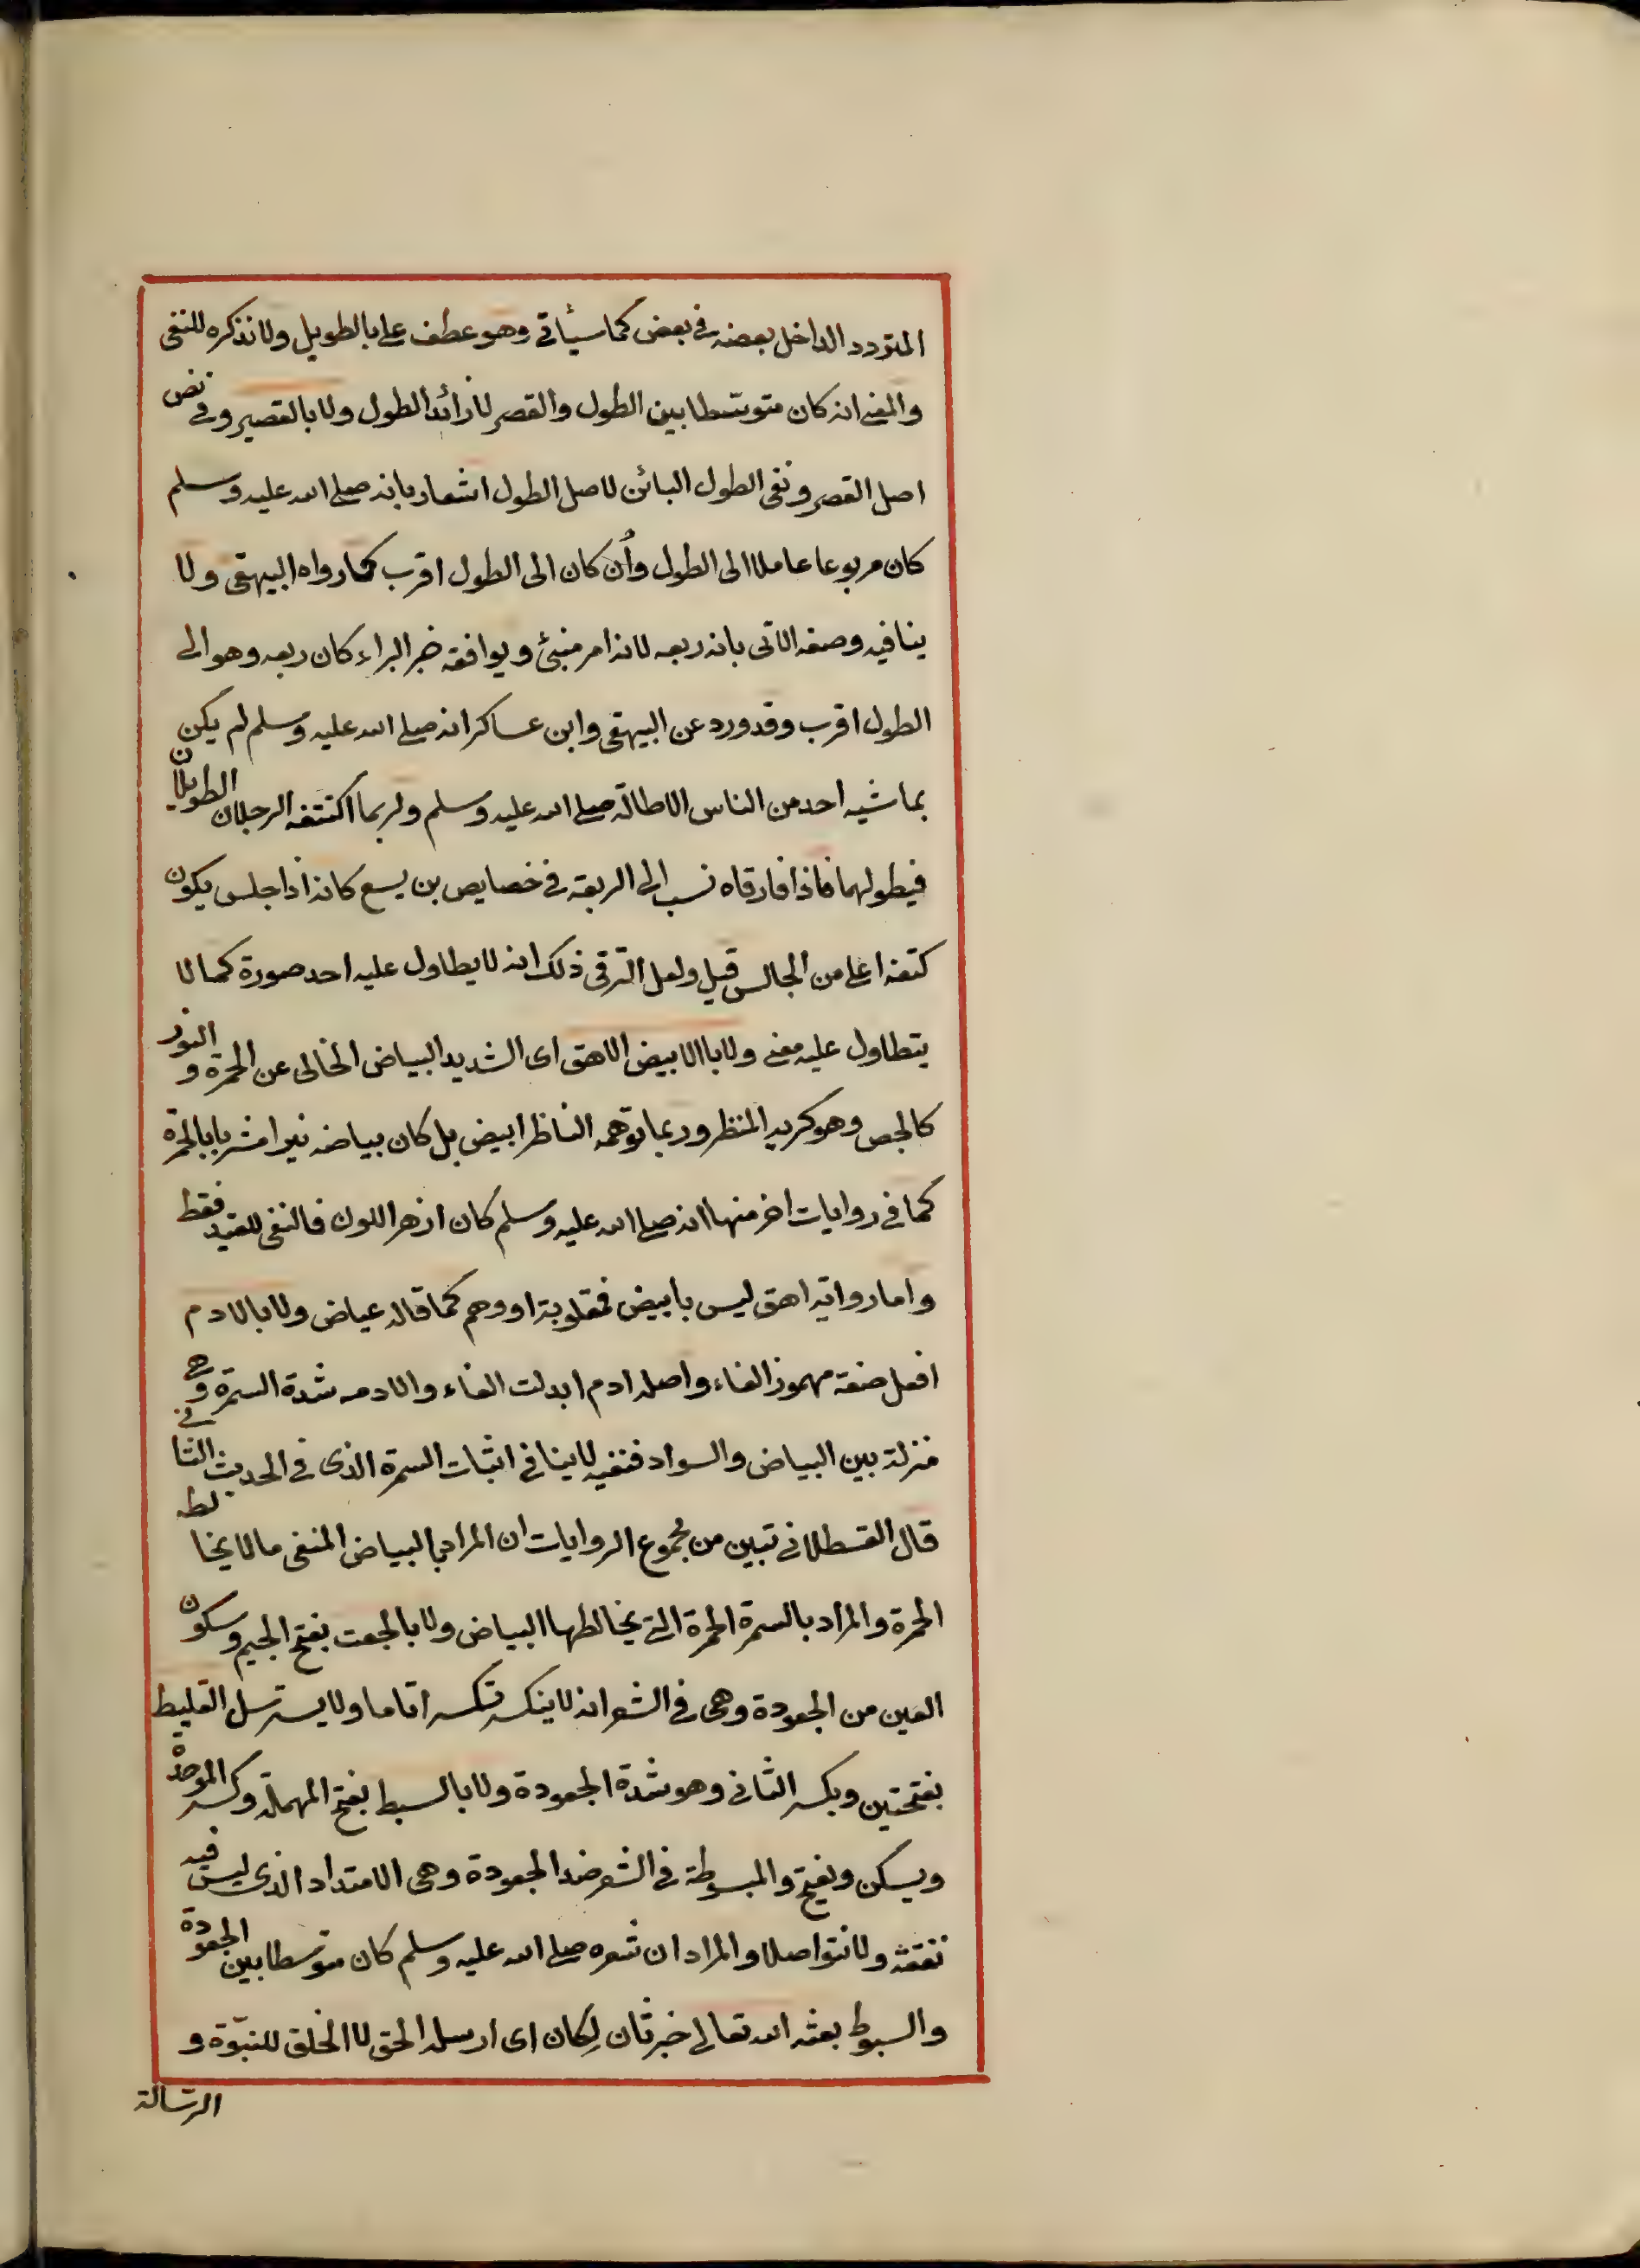 المتردد الداخل بعضه في بعض كما سيأتي وهو عطف على بالطويل ولا نذكره للنفي
والمعنى انه كان متوسطا بين الطول والقصر لا زائد الطول ولا بالقصير وفي نص
اصل القصر ونفى الطول البائن لا صل الطول اشعار بانه صلى الله عليه وسلم
كان مربوعا عاملا الى الطول وأن كان الى الطول اقرب كما رواه البيهقي ولا
ينافيه وصفه الاتى بانه ربعه لانه امر منبئ ويوافقه خبر البراء كان ربعه وهو الى
الطول اقرب وقد ورد عن البيهقي وابن عساكر انه صلى الله عليه وسلم لم يكن
بماشيه احد من الناس الا طاله صلى الله عليه وسلم ولربما اكتنفه الرجلان الطويلان
فيطولهما فاذا فارقاه نسب الى الربعة في خصايص بن يسع كانه اذا جلس يكون
كتفه اعلى من الجالس قيل ولعل الترقى ذلك انه لا يطاول عليه احد صورة كما لا
يتطاول عليه معنى ولا باالابيض الاهق اى الشديد البياض الخالى عن الحمرة و النور
كالجص وهو كريه المنظر وربما توهمه الناظر ابيض بل كان بياضه نيرا مشربا بالحمرة
كما في روايات اخر منها انه صلى الله عليه وسلم كان ازهر اللون فالنفى للقيد فقط
واما رواية اهق ليس بابيض فمقلوبة او وهم كما قاله عياض ولا بالادم
افعل صفة مهموز الفاء واصله ادم ابدلت الفاء والادمه شدة السمرة وهى
منزلة بين البياض والسواد فنفيه لا ينافى اثبات السمرة الذى في الحديث الثانى
قال القسطلانى تبين من مجموع الروايات ان المراد بالبياض المنفى ما لا يخالطه
الحمرة والمراد بالسمرة الحمرة التى يخالطها البياض ولا بالجعت بفتح الجيم وسكون
العين من الجعودة وهى فى الشعر انه لا ينكسر تكسرا تاما ولا يسترسل القليط
بفتحتين وبكسر الثانى وهو شدة الجعودة ولا بالسبط بفتح المهملة وكسر الموحدة
ويسكن وبفتح والمبسوطة فى الشعر ضد الجعودة وهى الامتداد الذى ليس فيه
تفتثه ولا نتواصلا والمراد ان شعره صلى الله عليه وسلم كان متوسطا بين الجعودة
والسبوط بعثه الله تعالى خبر ثان لكان اى ارسله الحق لا الخلق للنبوة و
الرسالة